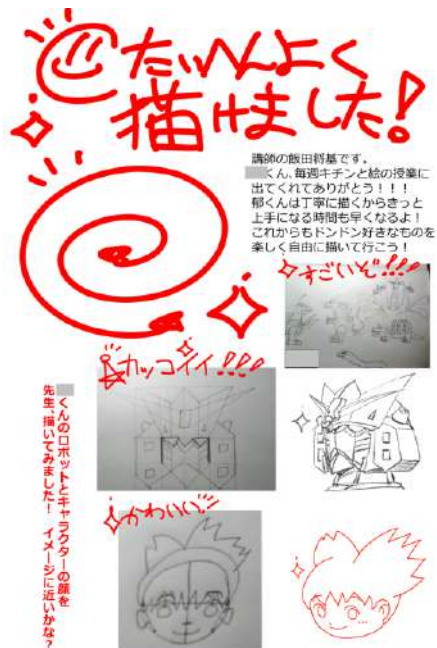 たいへんよく
描けました!
講師の飯田将基です。
くん、毎週キチンと絵の授業に
出てくれてありがとう!!!
郁くんは丁寧に描くからきっと
上手になる時間も早くなるよ!
これからもドンドン好きなものを
楽しく自由に描いて行こう!
すごいぞ!!!
カッコイイ!!!
くんのロボットとキャラクターの顔を
先生、描いてみました! イメージに近いかな?
かわいい!!